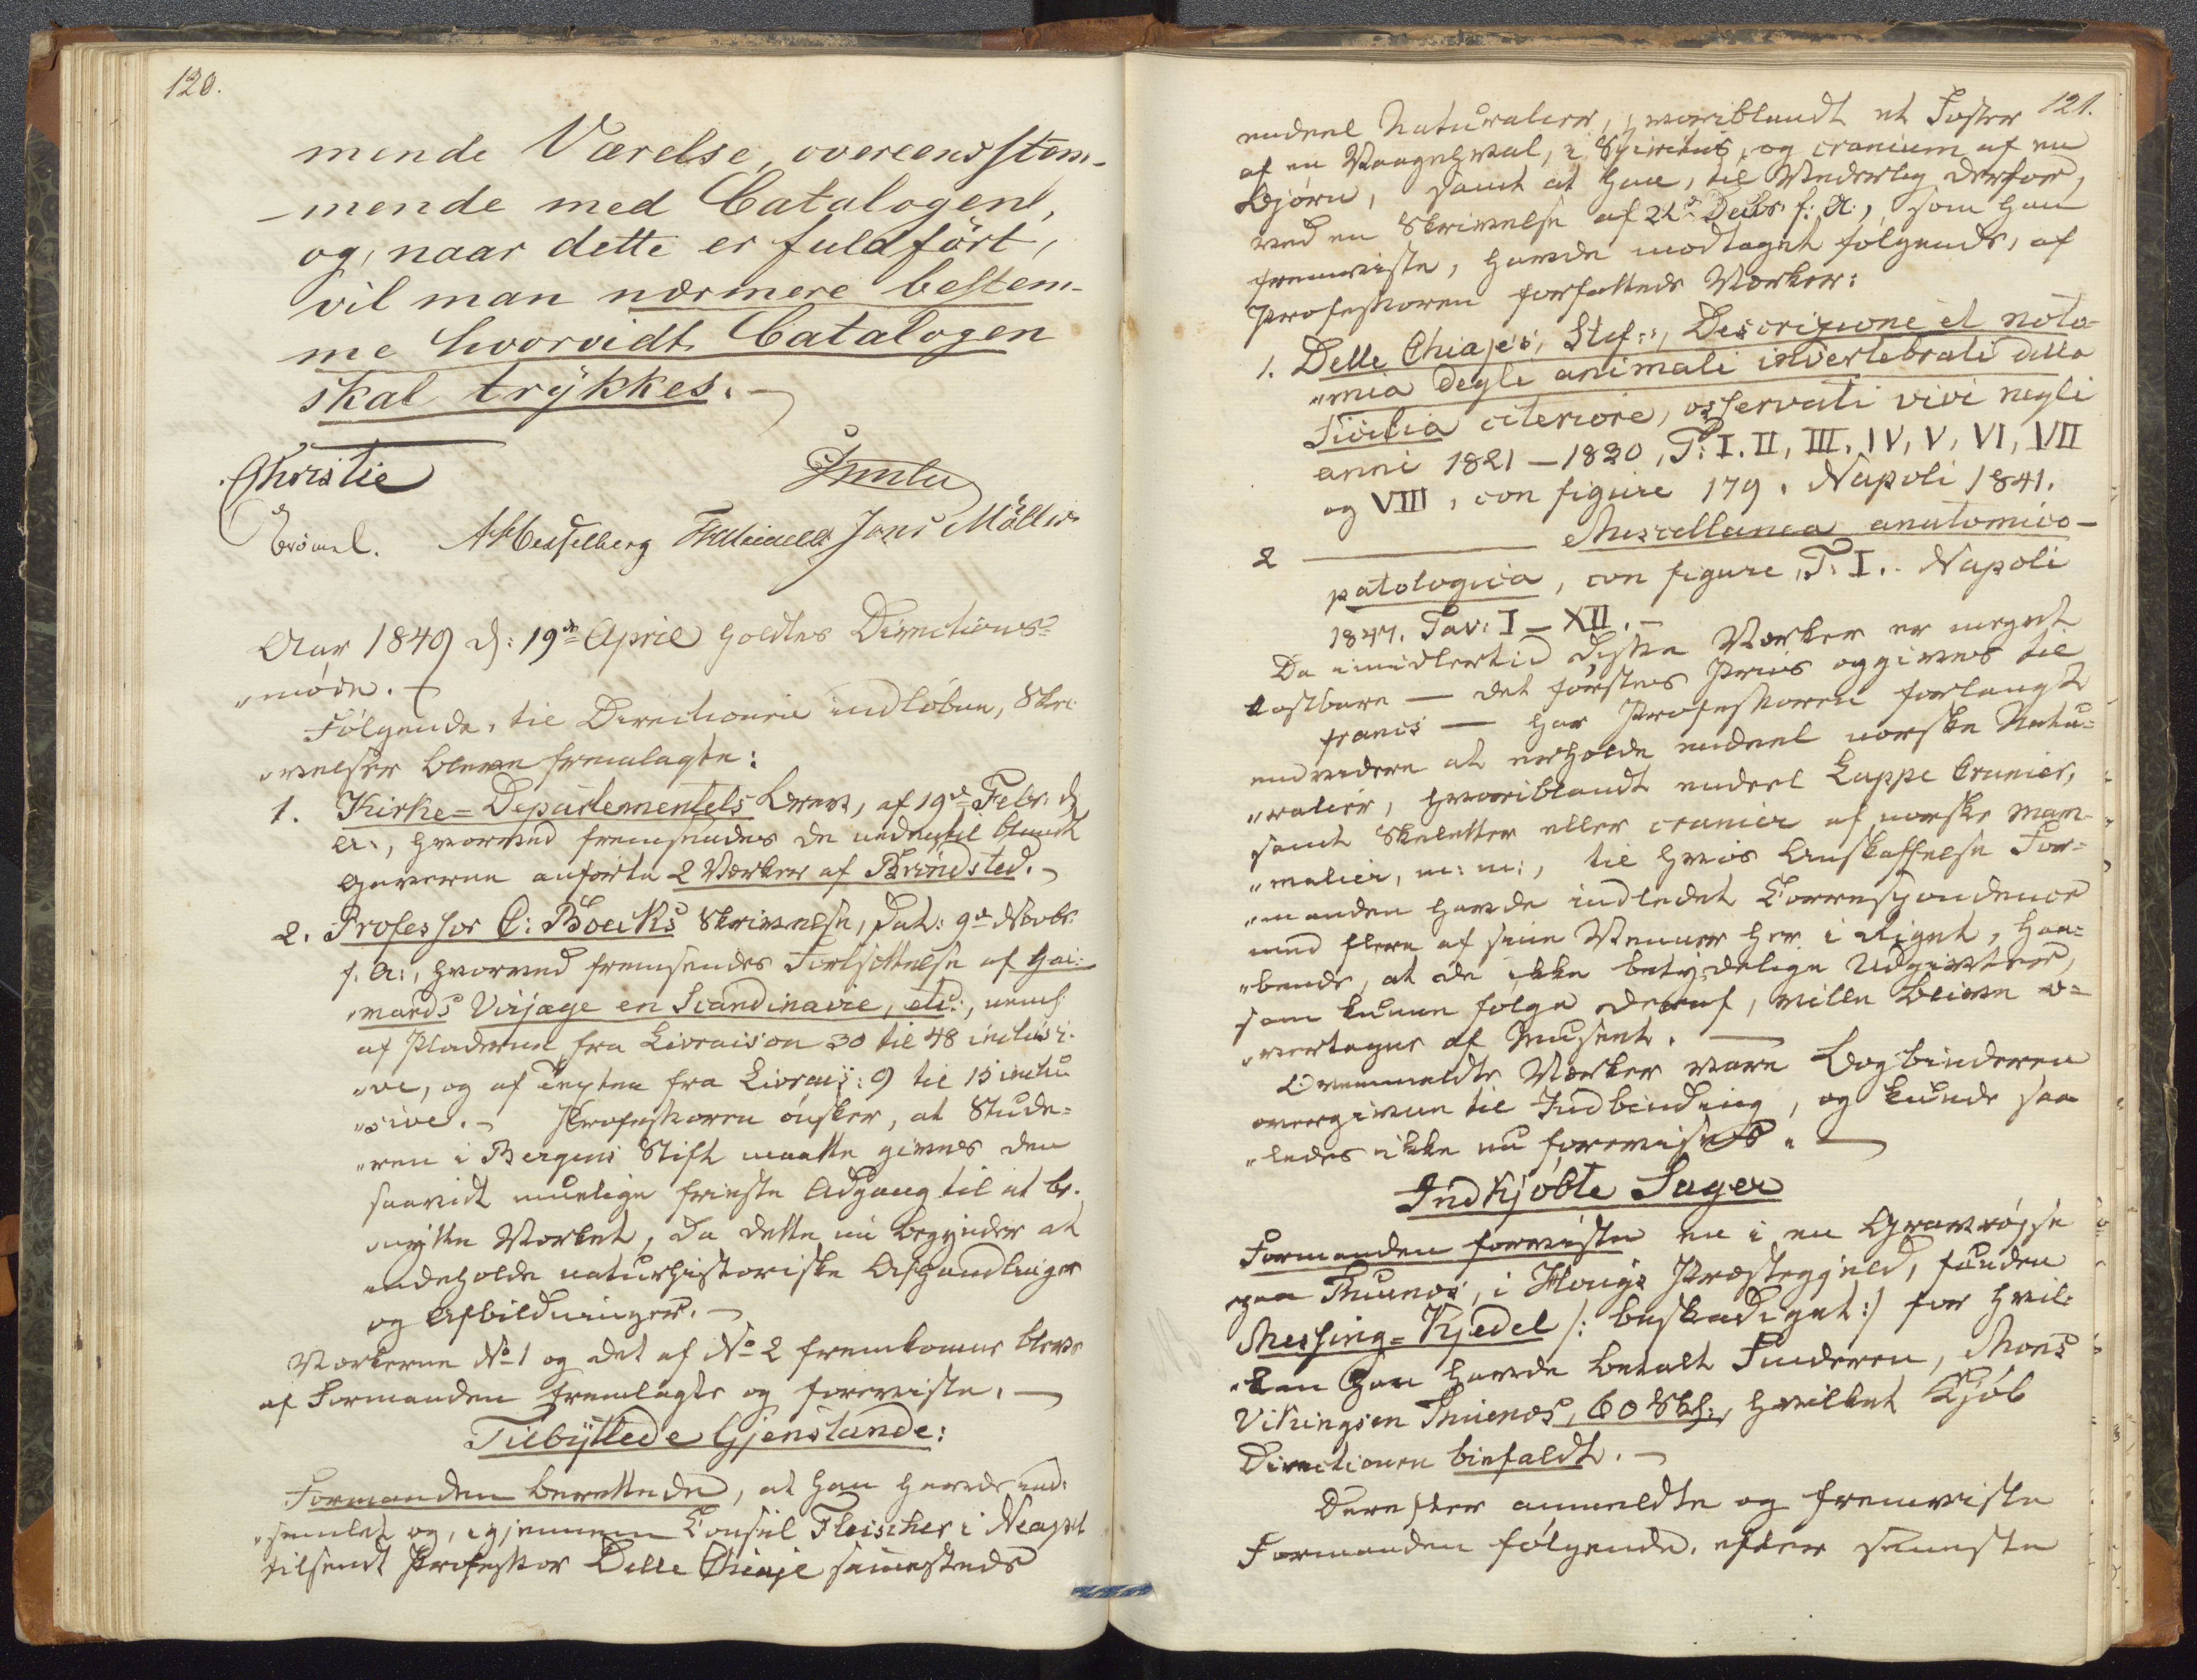 120.
mende Værelse, overeensstem-
-mende med Catalogen,
og, naar dette er fuldført,
vil man nærmere bestem-
me hvorvidt Catalogen
skal trykkes. —
Christie
Grønel. A Hesselberg Jens Möller
Aar 1849 d: 19de April holdtes Directions-
"møde. —
Følgende, til Directionen indløbne, Skri-
"velser bleve fremlagte:
1. Kirke=Departementets Brev, af 19de Febr: d.
A:, hvorved fremsendes de nedentil blandt
Gaverne anførte 2 Værker af Bröndsted. —
2. Professor C: Boecks Skrivelse, dat: 9de Novbr.
f. A:, hvorved fremsendes Fortsættelse af Gai-
"mards Voijage en Scandinavie, etc:, neml:
af Pladerne fra Livraison 30 til 48 inclusi-
"ve, og af Texten fra Livrais: 9 til 15 inclu-
"sive. — Professoren ønsker, at Stude-
"ren i Bergens Stift maatte gives den
saavidt muelige frieste Adgang til at be-
"nytte Værket, da dette nu begynder at
indeholde naturhistoriske Afhandlinger
og Afbildninger. —
Værkerne No 1 og det af No 2 fremkomne bleve
af Formanden fremlagte og foreviste. —
Tilbyttede Gjenstande:
Formanden berettede, at han havde ind-
"samlet og, igjennem Consul Fleischer i Neapel
tilsendt Professor Delle Chiaje sammesteds
121.
endeel Naturalier, hvoriblandt et Foster
af en Vaagehval, i Spiritus, og cranium af en
Bjørn, samt at han, til Vederlag derfor,
ved en Skrivelse af 22de Decbr: f: A:, som han
fremviste, havde modtaget følgende, af
Professoren forfattede Værker:
1. Delle Chiaje's, Stef:, Descrizione et noto-
"mia degli animali invertebrati della
Sicilia citeriore, osservati vivi negli
anni 1821 — 1830, T: I. II, III. IV, V, VI, VII
og VIII, con figure 179. Napoli 1841.
2 ——— Miscellanea anatomico-
patologica, con figure, T: I. Napoli
1847. Tav: I — XII. —
Da imidlertid disse Værker er meget
kostbare — det førstes Priis opgives til
francs — har Professoren forlangt
endvidere at erholde endeel norske Natu-
"ralier, hvoriblandt endeel Lappe Cranier,
samt Skeletter eller cranier af norske Mam-
"malier, m: m:, til hvis Anskaffelse For-
"manden havde indledet Correspondence
med flere af sine Venner her i Riget, haa-
"bende, at de ikke betydelige Udgivter,
som kunne følge deraf, ville blive o-
"vertagne af Museet. —
Ovenmeldte Værker vare Bogbinderen
overgivne til Indbinding, og kunde saa-
"ledes ikke nu forevises. —
Indkjøbte Sager
Formanden foreviste en i en Gravrøyse
paa Tuenæs, i Hougs Præstegjeld, funden
Messing=Kjedel /: beskadiget :/ for hvil-
"ken han havde betalt Finderen, Mons
Vikingsen Tuenæs, 60 Skl:, hvilket Kjøb
Directionen bifaldt. —
Derefter anmeldte og fremviste
Formanden følgende, efter seneste